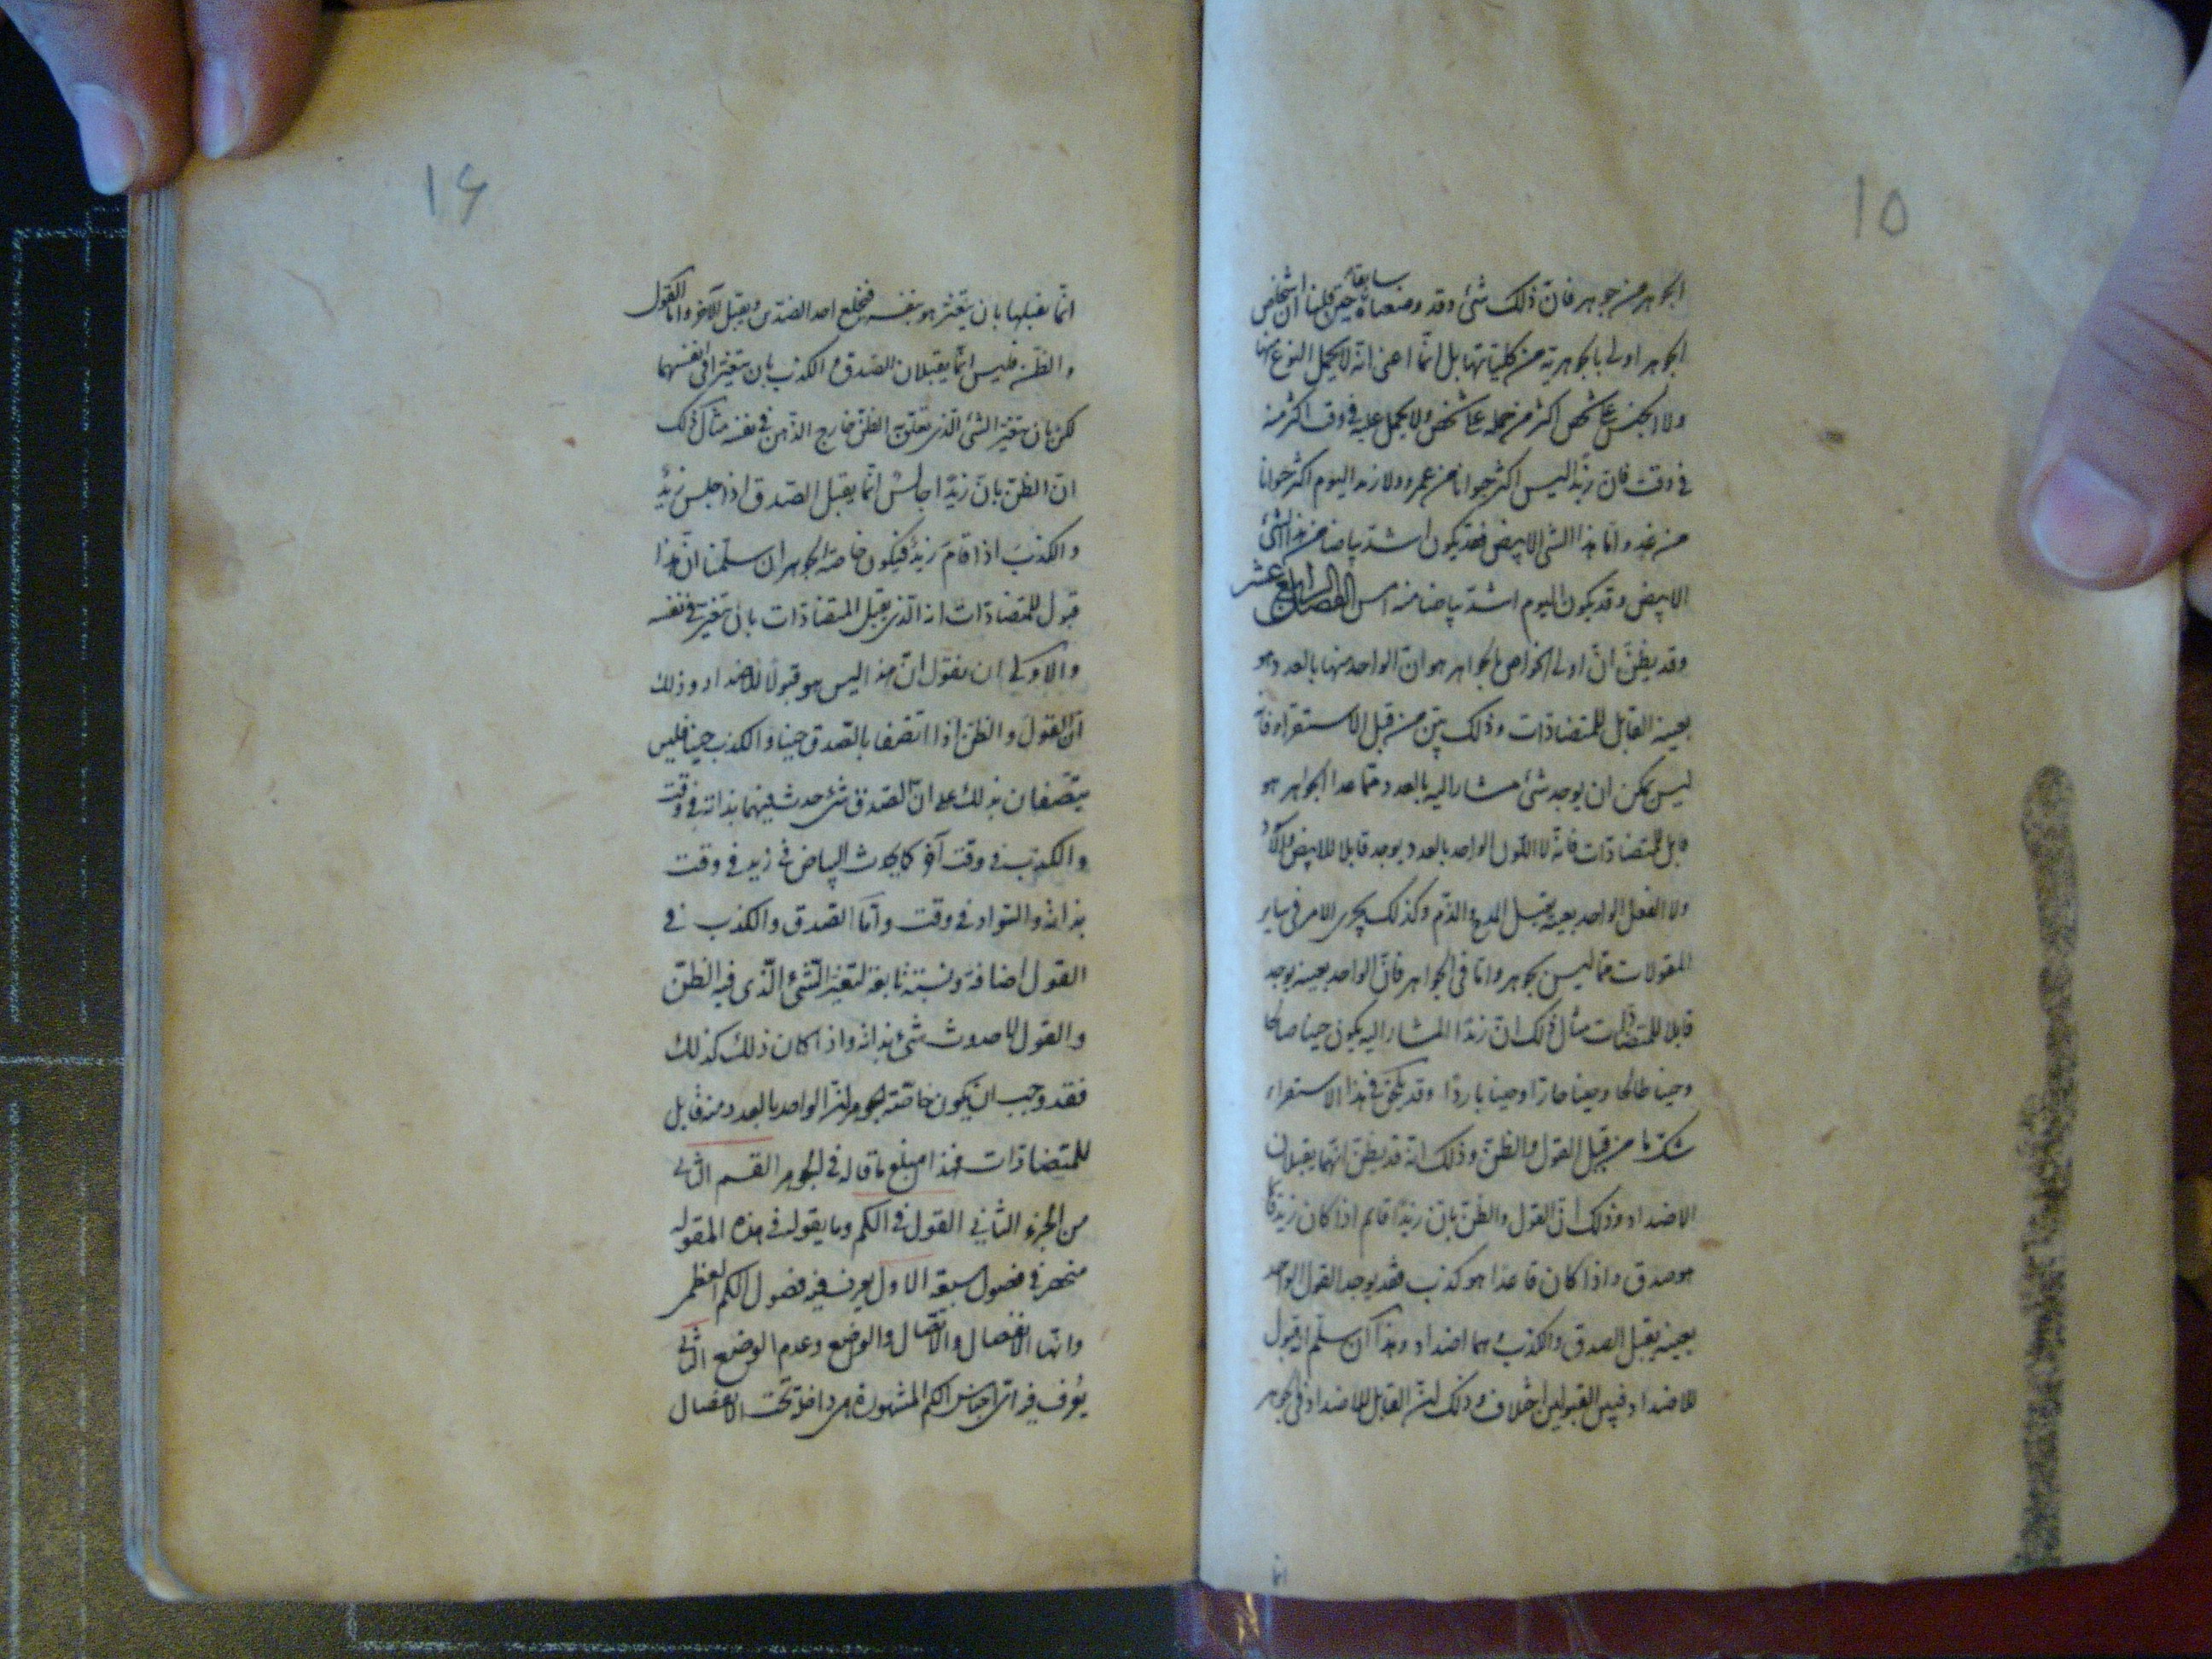 ١٥
الجوهر من جوهر فان ذلك شئ وقد وضعناه سابقا حين قلنا ان اشخاص
الجوهر اولى بالجوهرية من كلياتها بل انما اعنى انه لا يحمل النوع منها
ولا الجنس على شخص اكثر من حمله على شخص ولا يحمل عليه فى وقت اكثر منه
فى وقت فان زيدا ليس اكثر حيوانا من عمرو ولا زيد اليوم اكثر حيوانا
من غد واما هذا الشئ الابيض فقد يكون اشد بياضا من هذا الشئ
الابيض وقد يكون اليوم اشد بياضا منه امس الفصل الرابع عشر
وقد يظنّ انّ اولى الخواص بالجواهر هو ان الواحد منها بالعدد هو
بعينه القابل للمتضادّات وذلك بيّن من قبل الاستقراء فانه
ليس يمكن ان يوجد شئ مشار اليه بالعدد مما عدا الجواهر هو
قابل للمتضادّات فانه لا اللون الواحد بالعدد يوجد قابلا للابيض والاسود
ولا الفعل الواحد بعينه يقبل المدح والذم وكذلك يجرى الامر فى ساير
المقولات مما ليس بجوهر واما فى الجواهر فان الواحد بعينه يوجد
قابلا للمتضادات مثال ذلك ان زيدا المشار اليه يكون حينا صالحا
وحينا طالحا وحينا حارّا وحينا باردا وقد يلحق فى هذا الاستقراء
شكّ ما من قبل القول والظنّ وذلك انه قد يظنّ انهما يقبلان
الاضداد وذلك ان القول والظن بان زيدا قايم اذا كان زيد قايما
هو صدق واذا كان قاعدا هو كذب فقد يوجد القول الواحد
بعينه يقبل الصدق والكذب وهما اضداد وهذا ان سلم انه قبول
للاضداد فبين القبولين اختلاف وذلك ان القابل للاضداد فى الجوهر
انما
١٦
انّما يقبلها بان يتغيّر هو بنفسه فيخلع احد الضدّين ويقبل الآخر واما القول
والظنّ فليس انّما يقبلان الصدق والكذب بان يتغيّرا فى انفسهما
لكن بان يتغيّر الشئ الّذى تعلّق به الظنّ خارج الذهن فى نفسه مثال ذلك
انّ الظنّ بانّ زيدًا جالسٌ انّما يقبل الصّدق اذا جلس زيدٌ
والكذبَ اذا قامَ زيدٌ فيكون خاصة الجوهر ان سلّمنا انّ هذا
قبول للمتضادّات انه الّذى يقبل المتضادّات بان يتغيّر فى نفسه
والاولى ان نقول انّ هذا ليس هو قبولًا للاضداد وذلك
انّ القول والظنّ اذا اتّصفا بالصدق حينا والكذب حينا فليس
يتّصفان بذلك على انّ الصدق شئ حدث فيهما بذاته فى وقت
والكذب فى وقت آخر كما يحدث البياض فى زيد فى وقت
بذاته والسّواد فى وقت وامّا الصدق والكذب فى
القول اضافة ونسبة تابعة لتغيّر الشئ الّذى فيه الظنّ
والقول لا حدوث شئ بذاته واذا كان ذلك كذلك
فقد وجب ان يكون خاصّة الجوهر انّ الواحد بالعدد منه قابل
للمتضادّات فهذا مبلغ ما قاله فى الجوهر القسم الثانى
من الجزء الثانى القول فى الكم وما يقوله فى هذه المقولة
منحصر فى فصول سبعة الاول يعرف فيه فصول الكم العظمى
وانّها الانفصال والاتّصال والوضع وعدم الوضع الثانى
يُعرف فيه اىّ اجناس الكم المشهورة هى داخلة تحت الانفصال